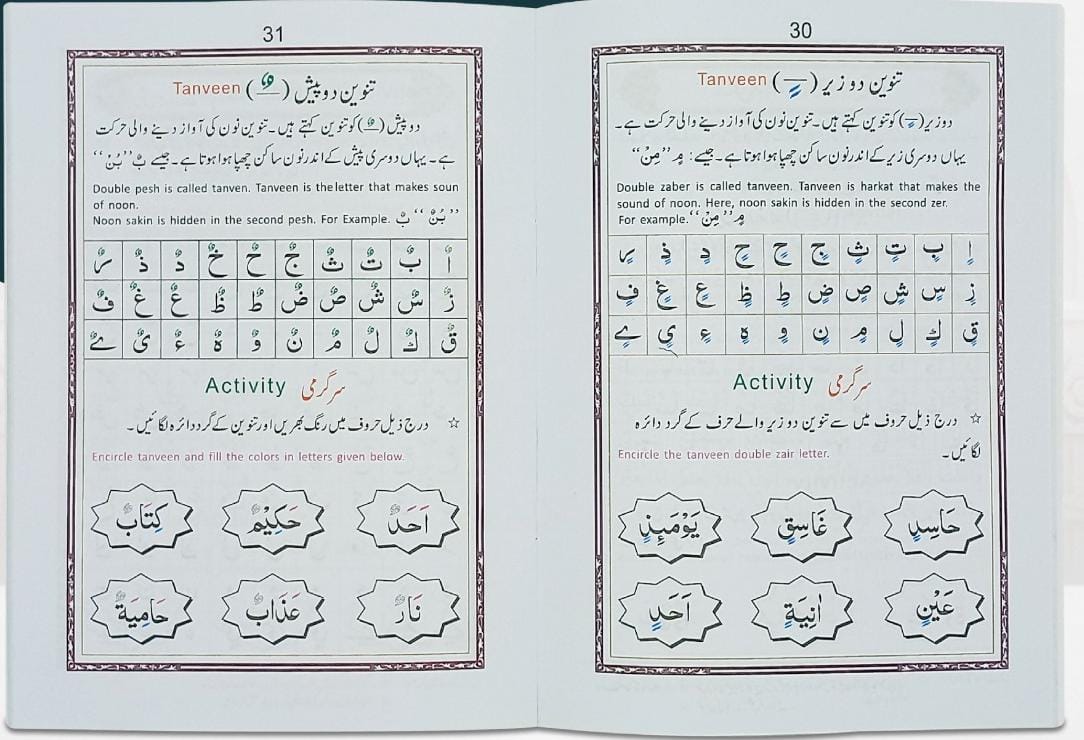 30
تنوین دو زیر (ـٍ) Tanveen
دو زیر (ـٍ) کو تنوین کہتے ہیں۔ تنوین نون کی آواز دینے والی حرکت ہے۔
یہاں دوسری زیر کے اندر نون ساکن چھپا ہوا ہوتا ہے۔ جیسے: مٍ ”مِنْ“
Double zaber is called tanveen. Tanveen is harkat that makes the
sound of noon. Here, noon sakin is hidden in the second zer.
For example. “مِنْ” مٍ
اٍ بٍ تٍ ثٍ جٍ حٍ خٍ دٍ ذٍ رٍ
زٍ سٍ شٍ صٍ ضٍ طٍ ظٍ عٍ غٍ فٍ
قٍ كٍ لٍ مٍ نٍ وٍ ہٍ ءٍ يٍ ےٍ
Activity سرگرمی
☆ درج ذیل حروف میں سے تنوین دو زیر والے حرف کے گرد دائرہ
لگائیں۔
Encircle the tanveen double zair letter.
حَاسِدٍ غَاسِقٍ يَوْمَئِذٍ
عَيْنٍ اٰنِيَةٍ اَحَدٍ
31
تنوین دو پیش (ـٌ) Tanveen
دو پیش (ـٌ) کو تنوین کہتے ہیں۔ تنوین نون کی آواز دینے والی حرکت
ہے۔ یہاں دوسری پیش کے اندر نون ساکن چھپا ہوا ہوتا ہے۔ جیسے بٌ ”بُنْ“
Double pesh is called tanven. Tanveen is the letter that makes soun
of noon.
Noon sakin is hidden in the second pesh. For Example. بٌ “بُنْ”
اٌ بٌ تٌ ثٌ جٌ حٌ خٌ دٌ ذٌ رٌ
زٌ سٌ شٌ صٌ ضٌ طٌ ظٌ عٌ غٌ فٌ
قٌ كٌ لٌ مٌ نٌ وٌ ةٌ ءٌ ىٌ ےٌ
Activity سرگرمی
☆ درج ذیل حروف میں رنگ بھریں اور تنوین کے گرد دائرہ لگائیں۔
Encircle tanveen and fill the colors in letters given below.
اَحَدٌ حَكِيْمٌ كِتَابٌ
نَارٌ عَذَابٌ حَامِيَةٌ